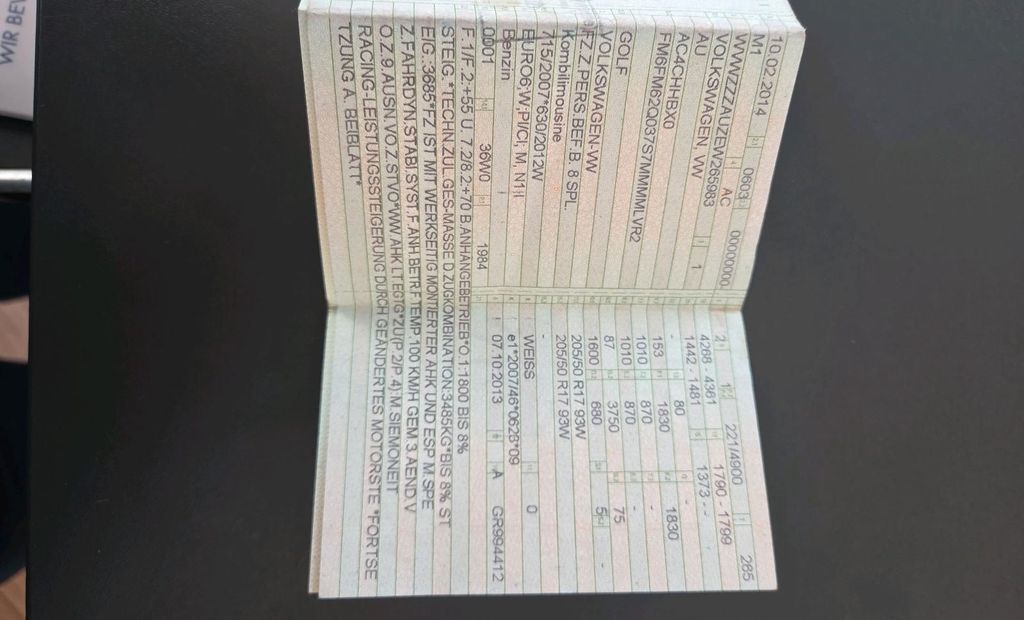 WIR BE
10.02.2014
M1 0603 AC 00000000
WVWZZZAUZEW265983
VOLKSWAGEN, VW 1
AU
AC4CHHBX0
FM6FM62Q037S7MMMMLVR2
GOLF
VOLKSWAGEN-VW
FZ.Z.PERS.BEF.B. 8 SPL.
Kombilimousine
715/2007*630/2012W
EURO6;W;PI/CI; M, N1 I
Benzin
0001 36W0 1984
265
2 1 221/4900
4268 - 4361 1790 - 1799
1442 - 1481 1373 - -
- 80 -
153 1830 1830
1010 870 -
1010 870 -
87 3750 75
1600 680 5 -
205/50 R17 93W
205/50 R17 93W
-
WEISS 0
e1*2007/46*0623*09
07.10.2013 A GR994412
F.1/F.2:+55 U. 7.2/8.2:+70 B ANHANGEBETRIEB*O.1:1800 BIS 8%
STEIG.*TECHN.ZUL.GES-MASSE D ZUGKOMBINATION:3485KG*BIS 8% ST
EIG.:3685*FZ IST MIT WERKSEITIG MONTIERTER AHK UND ESP M.SPE
Z.FAHRDYN.STABI.SYST.F.ANH.BETR.F.TEMP.100 KM/H GEM.3.AEND.V
O.Z.9.AUSN.VO.Z.STVO*WW AHK LT.EGTG*ZU(P.2/P.4):M SIEMONEIT
RACING-LEISTUNGSSTEIGERUNG DURCH GEÄNDERTES MOTORSTE *FORTSE
TZUNG A. BEIBLATT*